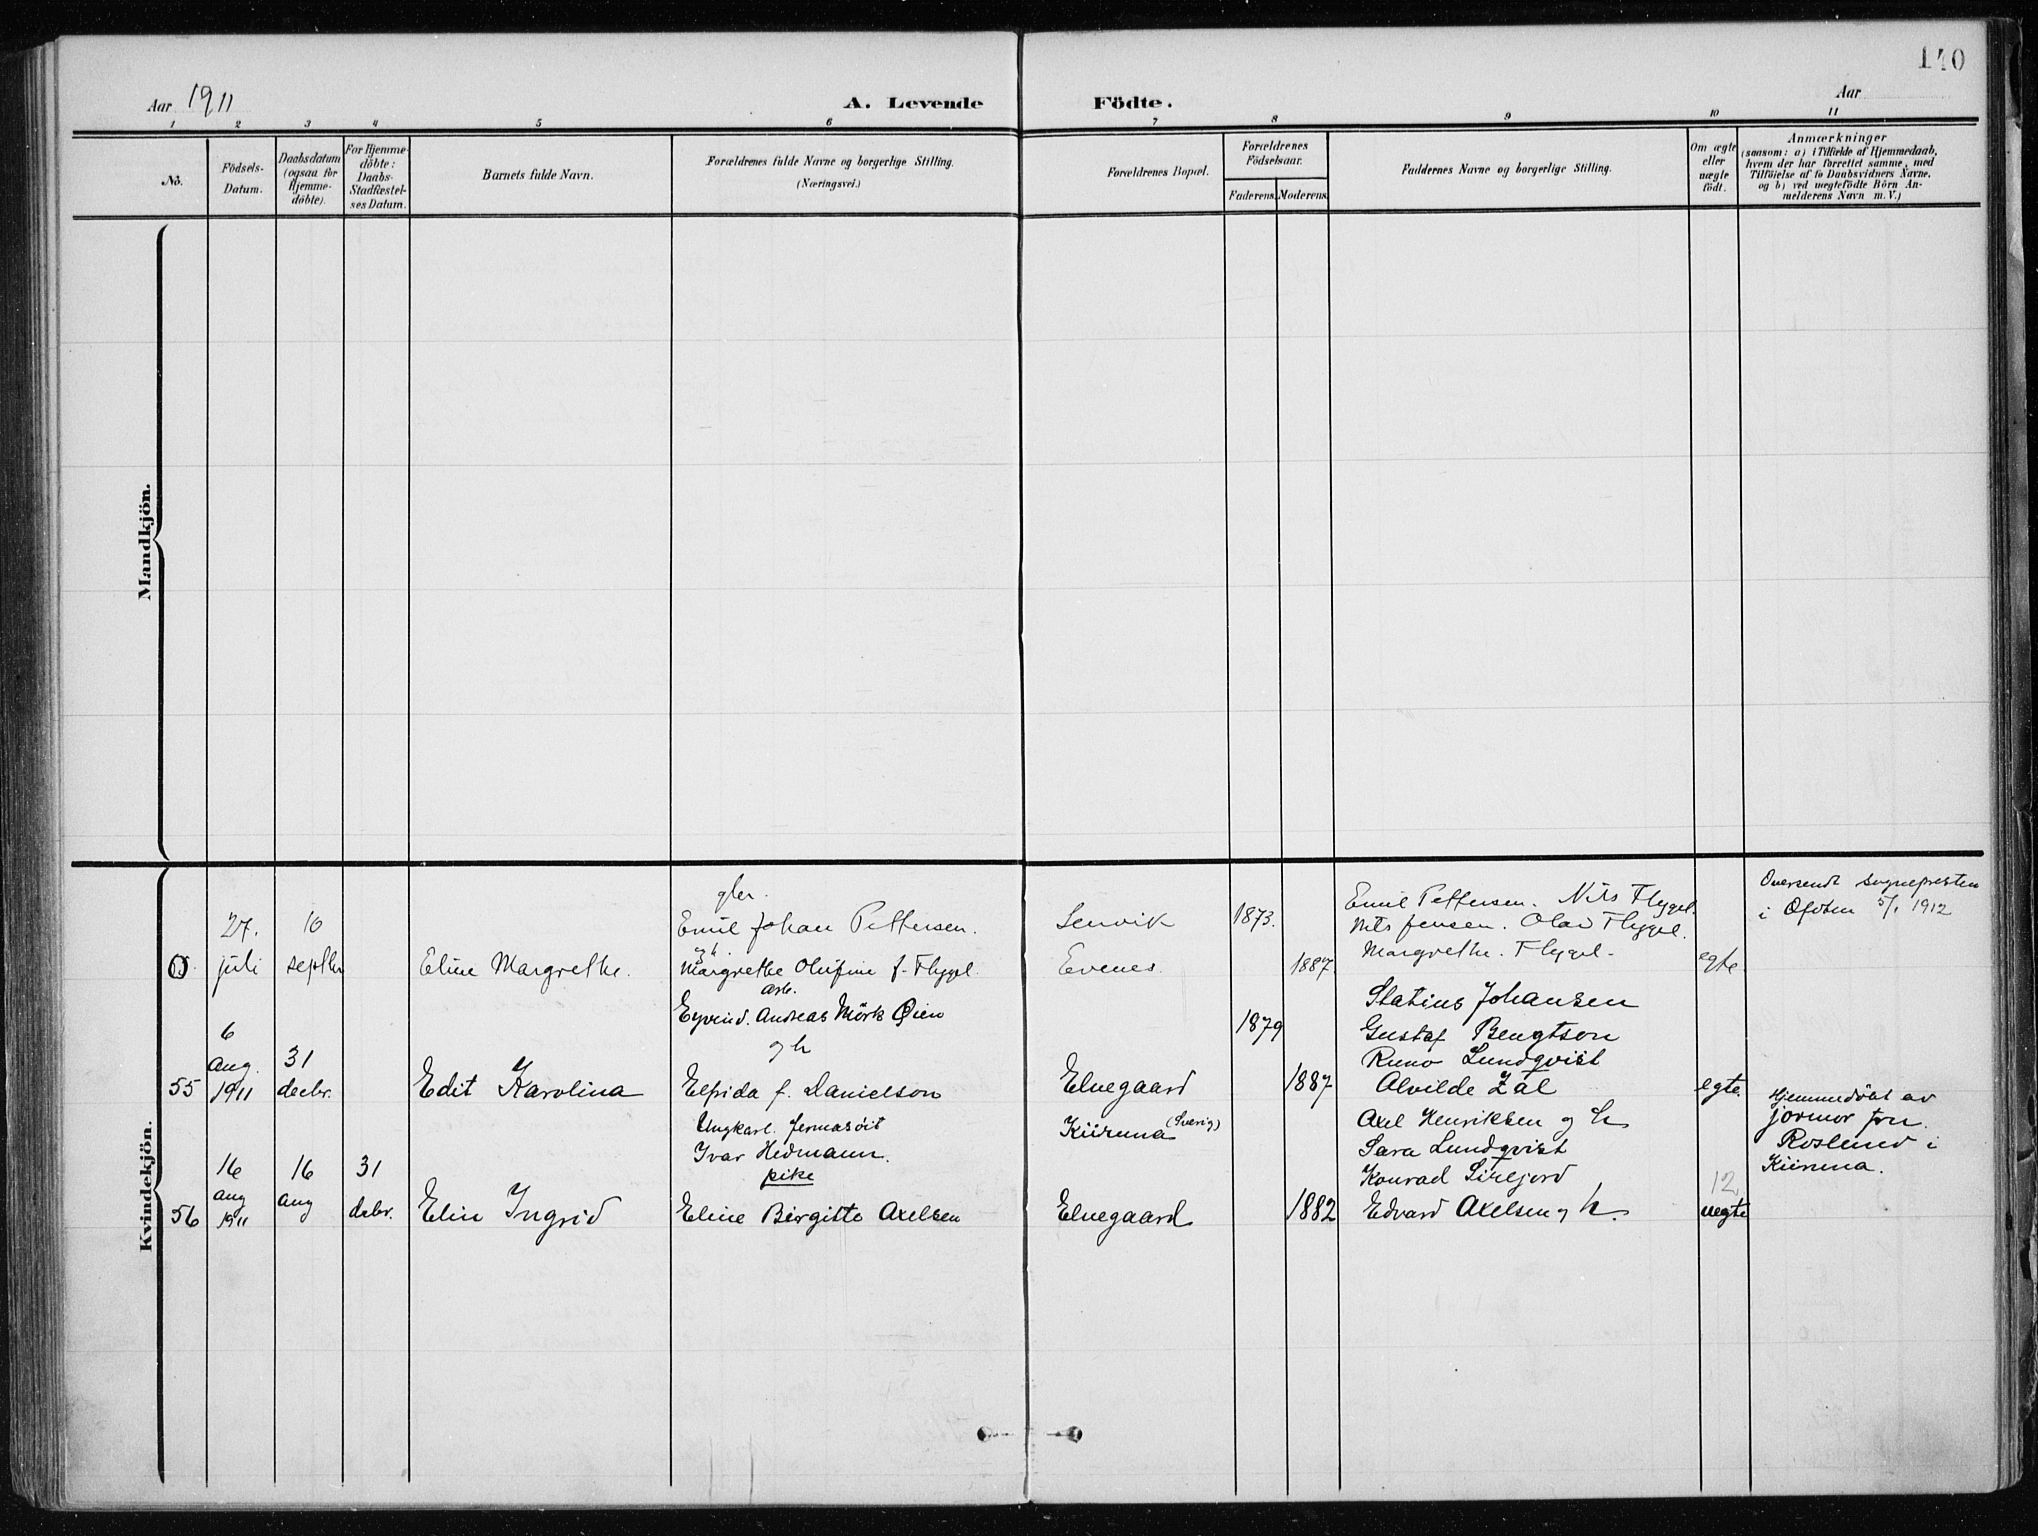 140
Aar 1911
A. Levende Födte.
Aar
1 2 3 4 5 6 7 8 9 10 11
No.
Födsels-
Datum.
Daabsdatum
(ogsaa for
Hjemme-
döbte).
For Hjemme-
döbte:
Daabs-
Stadfæstel-
ses Datum.
Barnets fulde Navn.
Forældrenes fulde Navne og borgerlige Stilling.
(Næringsvei.)
Forældrenes Bopæl.
Forældrenes
Födselsaar.
Faderens. Moderens.
Faddernes Navne og borgerlige Stilling.
Om ægte
eller
uægte
födt.
Anmærkninger
(saasom: a) i Tilfælde af Hjemmedaab,
hvem der har forrettet samme, med
Tilföielse af to Daabsvidners Navne,
og b) ved uægtefödte Börn An-
melderens Navn m. V.)
Mandkjön.
Kvindekjön.
0
27.
juli
10
septbr
Eline Margrethe.
gbr.
Emil Johan Pettersen.
Margrethe Olufine f. Flygel.
Lenvik
Evenes.
1873.
1887.
Emil Pettersen. Nils Flygel.
Nils Jensen. Olav Flygel.
Margrethe. Flygel.
egte.
Oversendt Sognepresten
i Ofoten 5/1 1912
55
6
Aug.
1911
31
decbr.
Edit Karolina
arb.
Eyvind. Andreas Mörk Øien
og h
Elfrida f. Danielson
Elvegaard
1879
1887
Statius Johansen
Gustaf Bengtson
Runo Lundqvist
Alvilde Zal
egte.
56
16
aug
1911
16
aug
31
debr.
Elin Ingrid
Ungkarl.
Ivar Hedmann.
pike
Eline Birgitte Axelsen
Kiiruna (Sverig)
Elvegaard
1882
Axel Henriksen og h
Sara Lundqvist
Konrad
Edvard Axelsen og h.
12.
uegte
Hjemmedöbt av
jormor fru
Roslund i
Kiiruna.